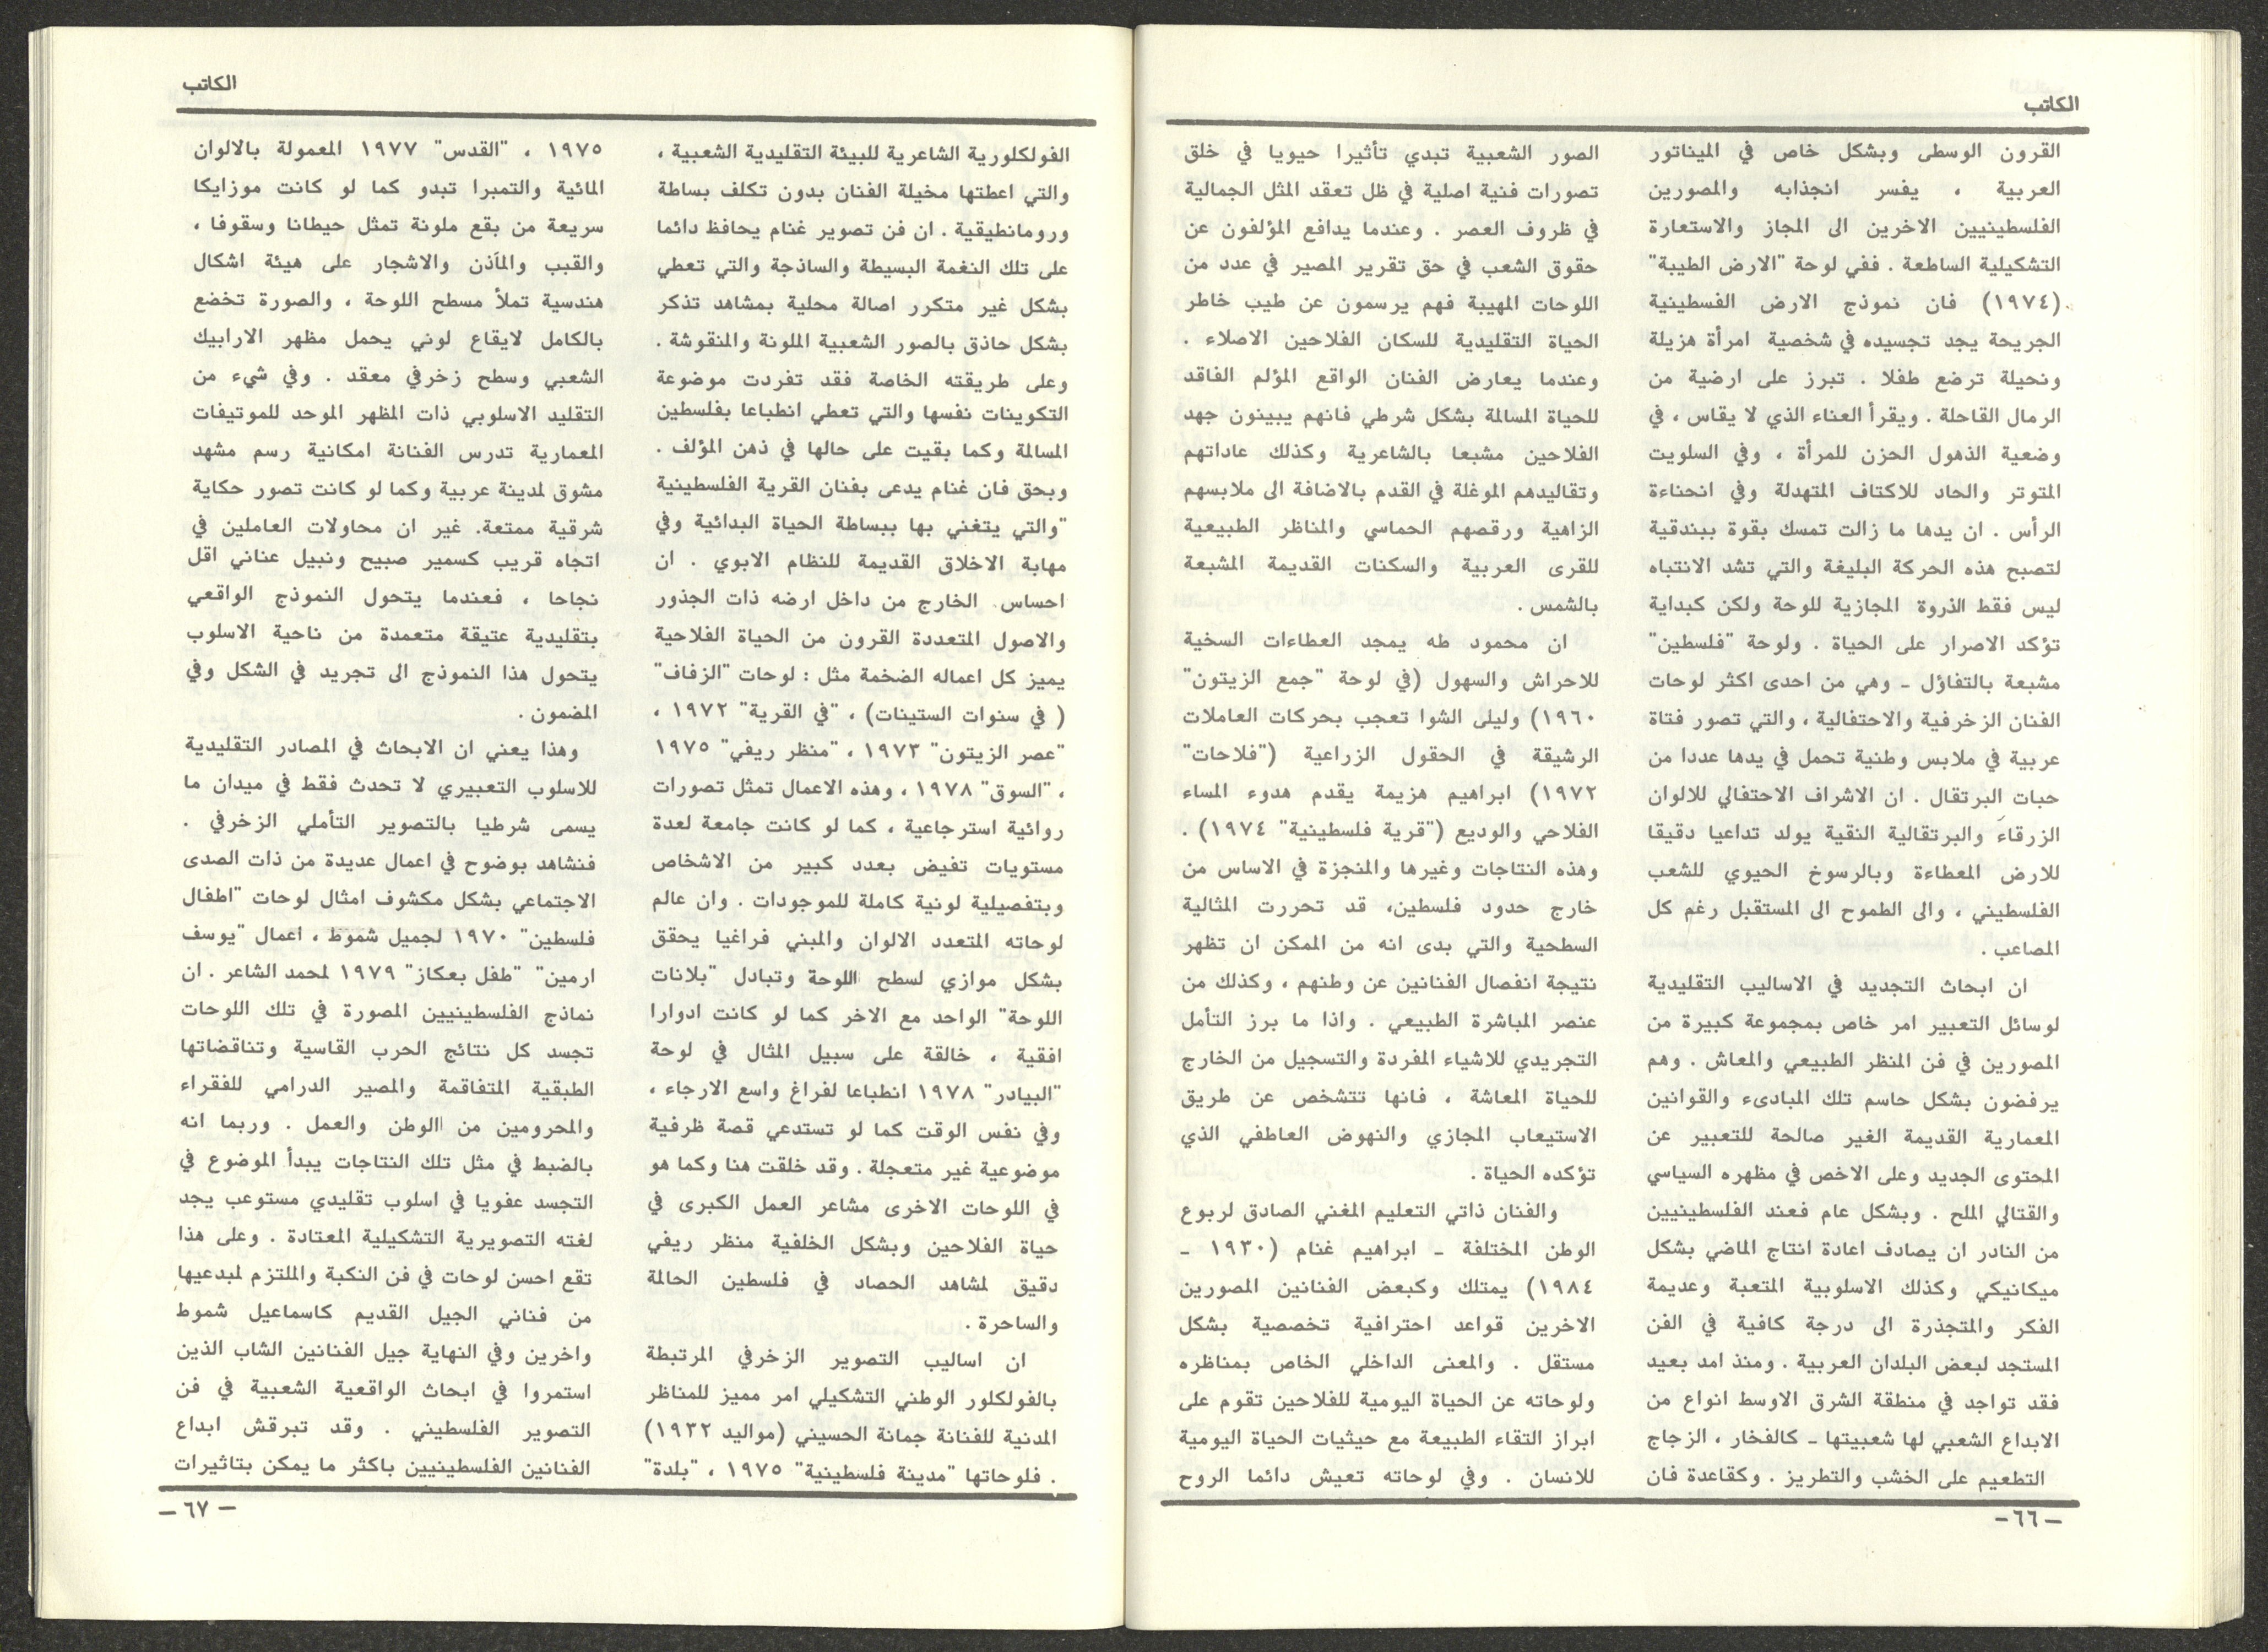 الكاتب
القرون الوسطى وبشكل خاص في الميناتور
العربية ، يفسر انجذابه والمصورين
الفلسطينيين الاخرين الى المجاز والاستعارة
التشكيلية الساطعة . ففي لوحة "الارض الطيبة"
(١٩٧٤) فان نموذج الارض الفسطينية
الجريحة يجد تجسيده في شخصية امرأة هزيلة
ونحيلة ترضع طفلا . تبرز على ارضية من
الرمال القاحلة . ويقرأ العناء الذي لا يقاس ، في
وضعية الذهول الحزن للمرأة ، وفي السلويت
المتوتر والحاد للاكتاف المتهدلة وفي انحناءة
الرأس . ان يدها ما زالت تمسك بقوة ببندقية
لتصبح هذه الحركة البليغة والتي تشد الانتباه
ليس فقط الذروة المجازية للوحة ولكن كبداية
تؤكد الاصرار على الحياة . ولوحة "فلسطين"
مشبعة بالتفاؤل ـ وهي من احدى اكثر لوحات
الفنان الزخرفية والاحتفالية ، والتي تصور فتاة
عربية في ملابس وطنية تحمل في يدها عددا من
حبات البرتقال . ان الاشراف الاحتفالي للالوان
الزرقاء والبرتقالية النقية يولد تداعيا دقيقا
للارض المعطاءة وبالرسوخ الحيوي للشعب
الفلسطيني ، والى الطموح الى المستقبل رغم كل
المصاعب .
ان ابحاث التجديد في الاساليب التقليدية
لوسائل التعبير امر خاص بمجموعة كبيرة من
المصورين في فن المنظر الطبيعي والمعاش . وهم
يرفضون بشكل حاسم تلك المبادىء والقوانين
المعمارية القديمة الغير صالحة للتعبير عن
المحتوى الجديد وعلى الاخص في مظهره السياسي
والقتالي الملح . وبشكل عام فعند الفلسطينيين
من النادر ان يصادف اعادة انتاج الماضي بشكل
ميكانيكي وكذلك الاسلوبية المتعبة وعديمة
الفكر والمتجذرة الى درجة كافية في الفن
المستجد لبعض البلدان العربية . ومنذ امد بعيد
فقد تواجد في منطقة الشرق الاوسط انواع من
الابداع الشعبي لها شعبيتها ـ كالفخار ، الزجاج
التطعيم على الخشب والتطريز . وكقاعدة فان
الصور الشعبية تبدي تأثيرا حيويا في خلق
تصورات فنية اصلية في ظل تعقد المثل الجمالية
في ظروف العصر . وعندما يدافع المؤلفون عن
حقوق الشعب في حق تقرير المصير في عدد من
اللوحات المهيبة فهم يرسمون عن طيب خاطر
الحياة التقليدية للسكان الفلاحين الاصلاء .
وعندما يعارض الفنان الواقع المؤلم الفاقد
للحياة المسالمة بشكل شرطي فانهم يبينون جهد
الفلاحين مشبعا بالشاعرية وكذلك عاداتهم
وتقاليدهم الموغلة في القدم بالاضافة الى ملابسهم
الزاهية ورقصهم الحماسي والمناظر الطبيعية
للقرى العربية والسكنات القديمة المشبعة
بالشمس .
ان محمود طه يمجد العطاءات السخية
للاحراش والسهول (في لوحة "جمع الزيتون"
١٩٦٠) وليلى الشوا تعجب بحركات العاملات
الرشيقة في الحقول الزراعية ("فلاحات"
١٩٧٢) ابراهيم هزيمة يقدم هدوء المساء
الفلاحي والوديع ("قرية فلسطينية" ١٩٧٤) .
وهذه النتاجات وغيرها والمنجزة في الاساس من
خارج حدود فلسطين، قد تحررت المثالية
السطحية والتي بدى انه من الممكن ان تظهر
نتيجة انفصال الفنانين عن وطنهم ، وكذلك من
عنصر المباشرة الطبيعي . واذا ما برز التأمل
التجريدي للاشياء المفردة والتسجيل من الخارج
للحياة المعاشة ، فانها تتشخص عن طريق
الاستيعاب المجازي والنهوض العاطفي الذي
تؤكده الحياة .
والفنان ذاتي التعليم المغني الصادق لربوع
الوطن المختلفة ـ ابراهيم غنام (١٩٣٠ ـ
١٩٨٤) يمتلك وكبعض الفنانين المصورين
الاخرين قواعد احترافية تخصصية بشكل
مستقل . والمعنى الداخلي الخاص بمناظره
ولوحاته عن الحياة اليومية للفلاحين تقوم على
ابراز التقاء الطبيعة مع حيثيات الحياة اليومية
للانسان . وفي لوحاته تعيش دائما الروح
ـ ٦٦ ـ
الكاتب
الفولكلورية الشاعرية للبيئة التقليدية الشعبية ،
والتي اعطتها مخيلة الفنان بدون تكلف بساطة
ورومانطيقية . ان فن تصوير غنام يحافظ دائما
على تلك النغمة البسيطة والساذجة والتي تعطي
بشكل غير متكرر اصالة محلية بمشاهد تذكر
بشكل حاذق بالصور الشعبية الملونة والمنقوشة .
وعلى طريقته الخاصة فقد تفردت موضوعة
التكوينات نفسها والتي تعطي انطباعا بفلسطين
المسالمة وكما بقيت على حالها في ذهن المؤلف .
وبحق فان غنام يدعى بفنان القرية الفلسطينية
"والتي يتغني بها ببساطة الحياة البدائية وفي
مهابة الاخلاق القديمة للنظام الابوي . ان
احساس الخارج من داخل ارضه ذات الجذور
والاصول المتعددة القرون من الحياة الفلاحية
يميز كل اعماله الضخمة مثل : لوحات "الزفاف"
( في سنوات الستينات) ، "في القرية" ١٩٧٢ ،
"عصر الزيتون" ١٩٧٣ ، "منظر ريفي" ١٩٧٥
، "السوق" ١٩٧٨ ، وهذه الاعمال تمثل تصورات
روائية استرجاعية ، كما لو كانت جامعة لعدة
مستويات تفيض بعدد كبير من الاشخاص
وبتفصيلية لونية كاملة للموجودات . وان عالم
لوحاته المتعدد الالوان والمبني فراغيا يحقق
بشكل موازي لسطح اللوحة وتبادل "بلانات
اللوحة" الواحد مع الاخر كما لو كانت ادوارا
افقية ، خالقة على سبيل المثال في لوحة
"البيادر" ١٩٧٨ انطباعا لفراغ واسع الارجاء ،
وفي نفس الوقت كما لو تستدعي قصة ظرفية
موضوعية غير متعجلة . وقد خلقت هنا وكما هو
في اللوحات الاخرى مشاعر العمل الكبرى في
حياة الفلاحين وبشكل الخلفية منظر ريفي
دقيق لمشاهد الحصاد في فلسطين الحالمة
والساحرة .
ان اساليب التصوير الزخرفي المرتبطة
بالفولكلور الوطني التشكيلي امر مميز للمناظر
المدنية للفنانة جمانة الحسيني (مواليد ١٩٣٢)
. فلوحاتها "مدينة فلسطينية" ١٩٧٥ ، "بلدة"
١٩٧٥ ، "القدس" ١٩٧٧ المعمولة بالالوان
المائية والتمبرا تبدو كما لو كانت موزايكا
سريعة من بقع ملونة تمثل حيطانا وسقوفا ،
والقبب والمآذن والاشجار على هيئة اشكال
هندسية تملأ مسطح اللوحة ، والصورة تخضع
بالكامل لايقاع لوني يحمل مظهر الارابيك
الشعبي وسطح زخرفي معقد . وفي شيء من
التقليد الاسلوبي ذات المظهر الموحد للموتيفات
المعمارية تدرس الفنانة امكانية رسم مشهد
مشوق لمدينة عربية وكما لو كانت تصور حكاية
شرقية ممتعة. غير ان محاولات العاملين في
اتجاه قريب كسمير صبيح ونبيل عناني اقل
نجاحا ، فعندما يتحول النموذج الواقعي
بتقليدية عتيقة متعمدة من ناحية الاسلوب
يتحول هذا النموذج الى تجريد في الشكل وفي
المضمون .
وهذا يعني ان الابحاث في المصادر التقليدية
للاسلوب التعبيري لا تحدث فقط في ميدان ما
يسمى شرطيا بالتصوير التأملي الزخرفي .
فنشاهد بوضوح في اعمال عديدة من ذات الصدى
الاجتماعي بشكل مكشوف امثال لوحات "اطفال
فلسطين" ١٩٧٠ لجميل شموط ، اعمال "يوسف
ارمين" "طفل بعكاز" ١٩٧٩ لمحمد الشاعر . ان
نماذج الفلسطينيين المصورة في تلك اللوحات
تجسد كل نتائج الحرب القاسية وتناقضاتها
الطبقية المتفاقمة والمصير الدرامي للفقراء
والمحرومين من الوطن والعمل . وربما انه
بالضبط في مثل تلك النتاجات يبدأ الموضوع في
التجسد عفويا في اسلوب تقليدي مستوعب يجد
لغته التصويرية التشكيلية المعتادة . وعلى هذا
تقع احسن لوحات في فن النكبة والملتزم لمبدعيها
من فناني الجيل القديم كاسماعيل شموط
واخرين وفي النهاية جيل الفنانين الشاب الذين
استمروا في ابحاث الواقعية الشعبية في فن
التصوير الفلسطيني . وقد تبرقش ابداع
الفنانين الفلسطينيين باكثر ما يمكن بتاثيرات
ـ ٦٧ ـ